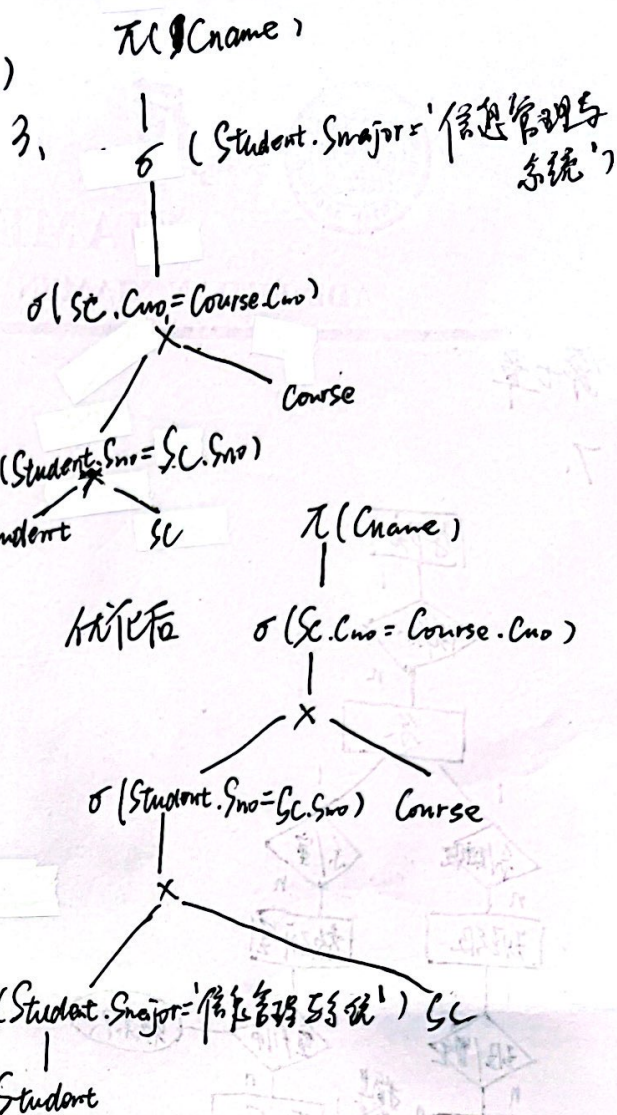 )
π(Cname)
3、
σ (Student.Smajor='信息管理与
系统')
σ(SC.Cno=Course.Cno)
×
Course
(Student.Sno=SC.Sno)
×
udent
SC
优化后
π(Cname)
σ(SC.Cno=Course.Cno)
×
σ(Student.Sno=SC.Sno) Course
×
(Student.Smajor='信息管理与系统') SC
Student